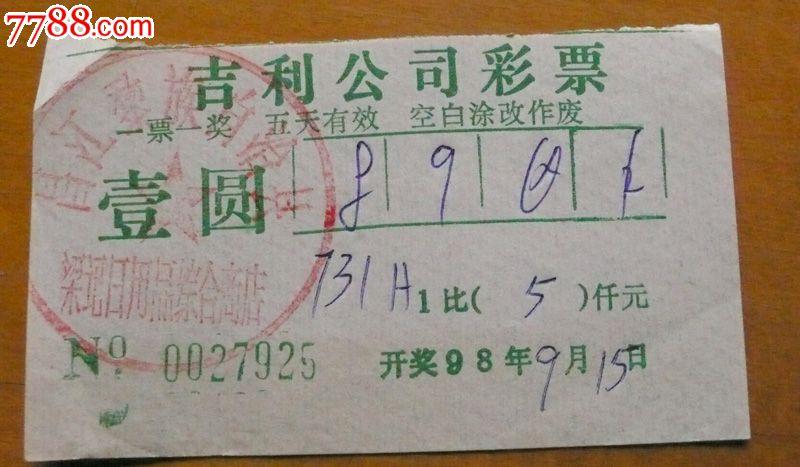 7788.com
吉利公司彩票
一票一奖 五天有效 空白涂改作废
壹圆 8 9
731H 1比( 5 )仟元
梁记日用品综合商店
№ 0027925 开奖98年9月15日